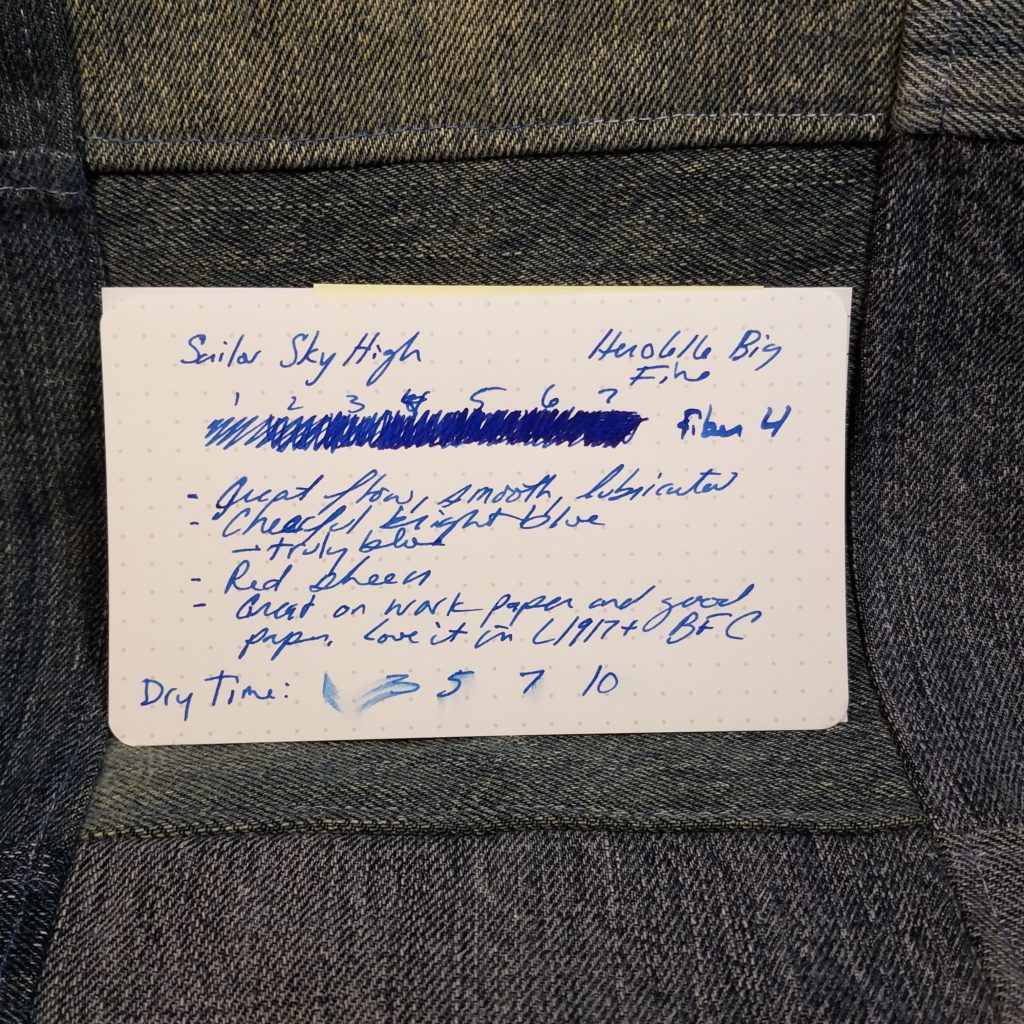 Sailor Sky High
Hero616 Big
Fine
1 2 3 4 5 6 7
Fiber 4
- Great flow, smooth, lubricated
- Cheerful bright blue
→ truly blue
- Red sheen
- Great on work paper and good
paper. Love it in L1917 + BFC
Dry Time: 1 3 5 7 10